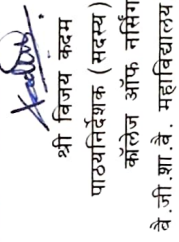 श्री विजय कदम
पाठयनिर्देशक (सदस्य)
कॉलेज ऑफ नर्सिंग
वै.जी.शा.वै. महाविद्यालय